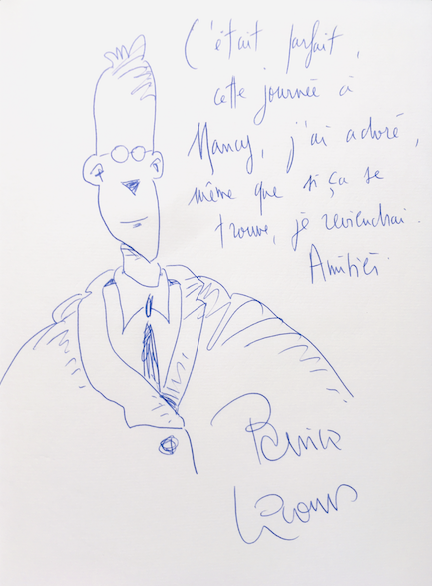 C'était parfait,
cette journée à
Nancy, j'ai adoré,
même que si ça se
trouve, je reviendrai.
Amitiés.
Patrick